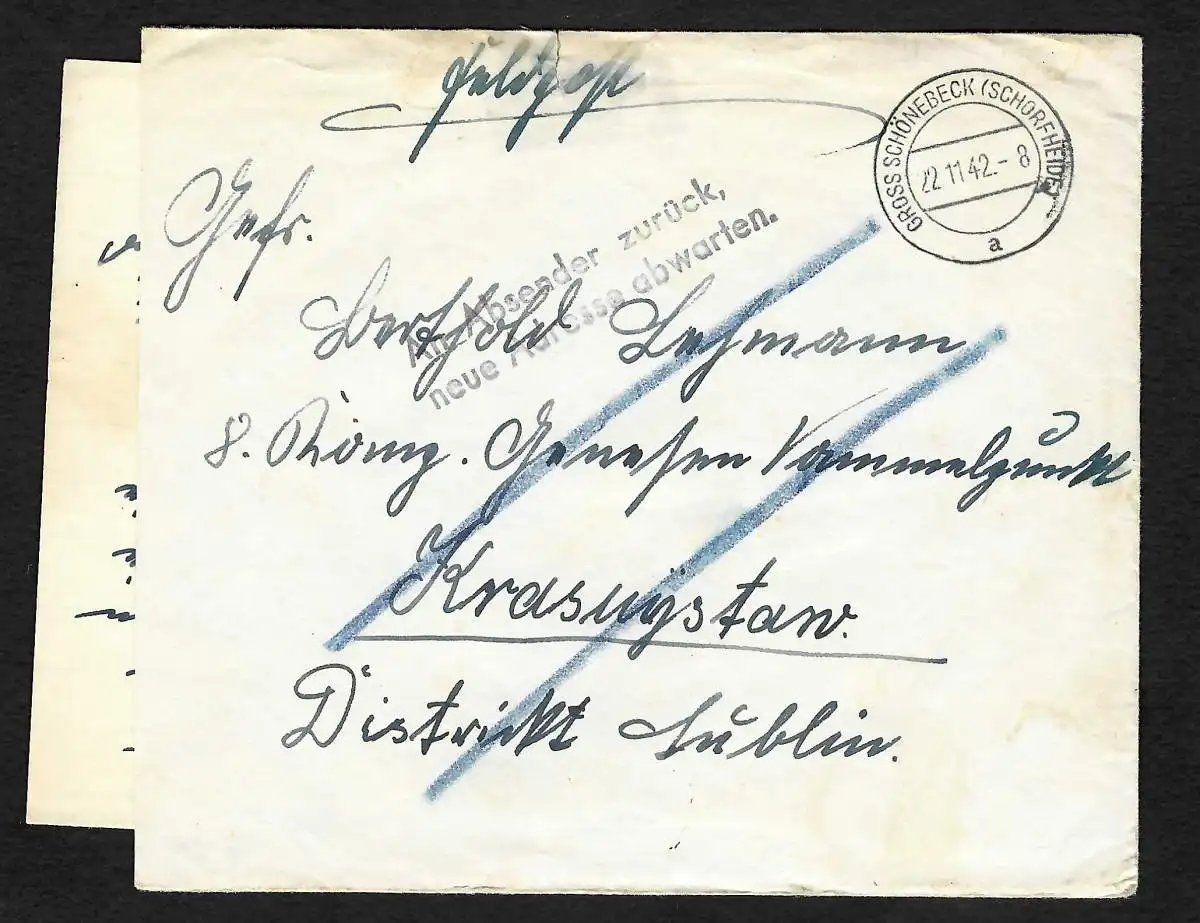 Feldpost
GROSS SCHÖNEBECK (SCHORFHEIDE)
22.11.42.-8
a
An Absender zurück,
neue Adresse abwarten.
Gefr.
Berthold Lehmann
8. Komp. Genesen Sammelpunkt
Krasnÿstaw.
Distrikt Lublin.